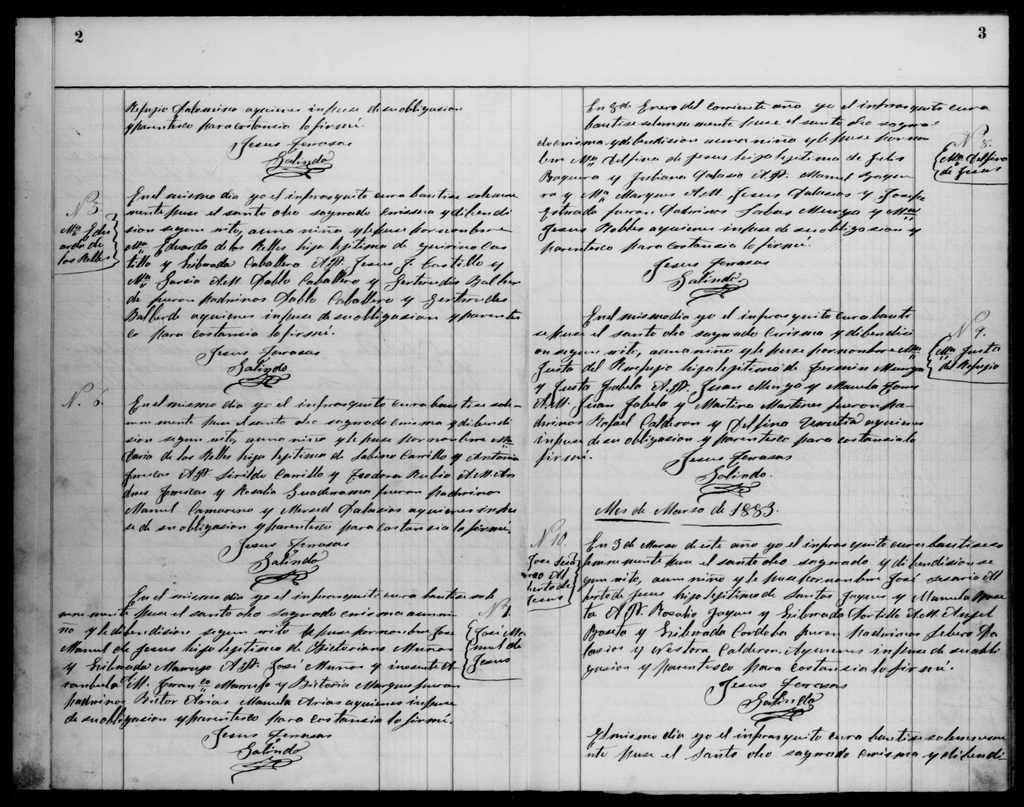 2
Refugio Palomino a quienes inpuse de su obligasion
y parentesco para costancia lo firmé.
Jesus Terasas
Galindo
N. 5.
Ma. Edu
arda de
los Relles
En el mismo dia yo el infrasquito cura bautise solenne
mente puse el santo oleo sagrado crisma y di bendi
sion segun rito, a una niña y le puse por nombre
Ma. Eduarda de los Relles hija lejitima de Quirino Cas
tillo y Gibrada Caballero A.P. Jesus F. Castillo y
Ma. Garsia A.M. Pablo Caballero y Gertrudes Balber
de fueron padrinos Pablo Caballero y Gertrudes
Balberde a quienes inpuse de su obligasion y parentes
co para costancia lo firmé.
Jesus Terasas
Galindo
N. 6.
En el mismo dia yo el infrasquito cura bautise sole
nemente puse el santo oleo sagrado crisma y di bendi
sion segun rito, a una niña y le puse por nombre Ma.
Daria de los Relles hija lejitima de Sabino Carrillo y Antonia
A.P. Sirildo Carrillo y Teodora Rubio A.M. An
dres y Rosalia fueron padrinos
Manuel Camareno y Mersed Palasios a quienes inpu
se de su obligasion y parentesco para costancia lo firmé.
Jesus Terasas
Galindo
En el mismo dia yo el infrasquito cura bautise sole
nemente puse el santo oleo sagrado crisma a un ni
ño y le di bendision segun rito le puse por nombre José
Manuel de Jesus hijo lejitimo de Bictoriano Muños
y Gibrada Marrufo A.P. José Muños y
A.M. Franco. Marrufo y Bictoria Marques fueron
padrinos Bictor Arias Manuela Arias a quienes inpuse
de su obligasion y parentesco para costancia lo firmé.
N. 7.
José Ma
nuel de
Jesus
Jesus Terasas
Galindo
3
En 8 de Enero del corriente año yo el infrasquito cura
bautise solennemente puse el santo oleo sagra
do crisma y di bendision a una niña y le puse por nom
bre Ma. Delfina de Jesus hija lejitima de Felis
y Juliana Palasio A.P. Manuel
ra y Ma. Marques A.M. Jesus Palasios y Josefa
Estrada fueron Padrinos Sabas Mungo y Ma.
Jesus Robles a quienes inpuse de su obligasion y
parentesco para costancia lo firmé.
N. 8.
Ma. Delfina
de Jesus
Jesus Terasas
Galindo
En el mismo dia yo el infrasquito cura bauti
se puse el santo oleo sagrado crisma y di bendisi
on segun rito, a una niña y le puse por nombre Ma.
Justa del Refugio hija lejitima de Jeremias Mungo
y Justa Fabela A.P. Juan Mungo y Manuela
A.M. Juan Fabela y Martina Martines fueron pa
drinos Rafael Calderon y Delfina a quienes
inpuse de su obligasion y parentesco para costancia lo
firmé.
N. 9.
Ma. Justa
del Refugio
Jesus Terasas
Galindo.
Mes de Marso de 1883.
N. 10.
José
Al
berto de
Jesus
En 3 de Marso de este año yo el infrasquito cura bautise so
lennemente puse el santo oleo sagrado y di bendision se
gun rito, a un niño y le puse por nombre José Al
berto de Jesus hijo lejitimo de Santos y Manuela
A.P. Rosalio y Gibrada Portillo A.M. Angel
y Gibrada Cordoba fueron padrinos Pa
lasios y Nestora Calderon. A quienes inpuse de su obli
gasion y parentesco para costancia lo firmé.
Jesus Terasas
Galindo
El mismo dia yo el infrasquito cura bautise solenneme
nte puse el santo oleo sagrado crisma y di bendi